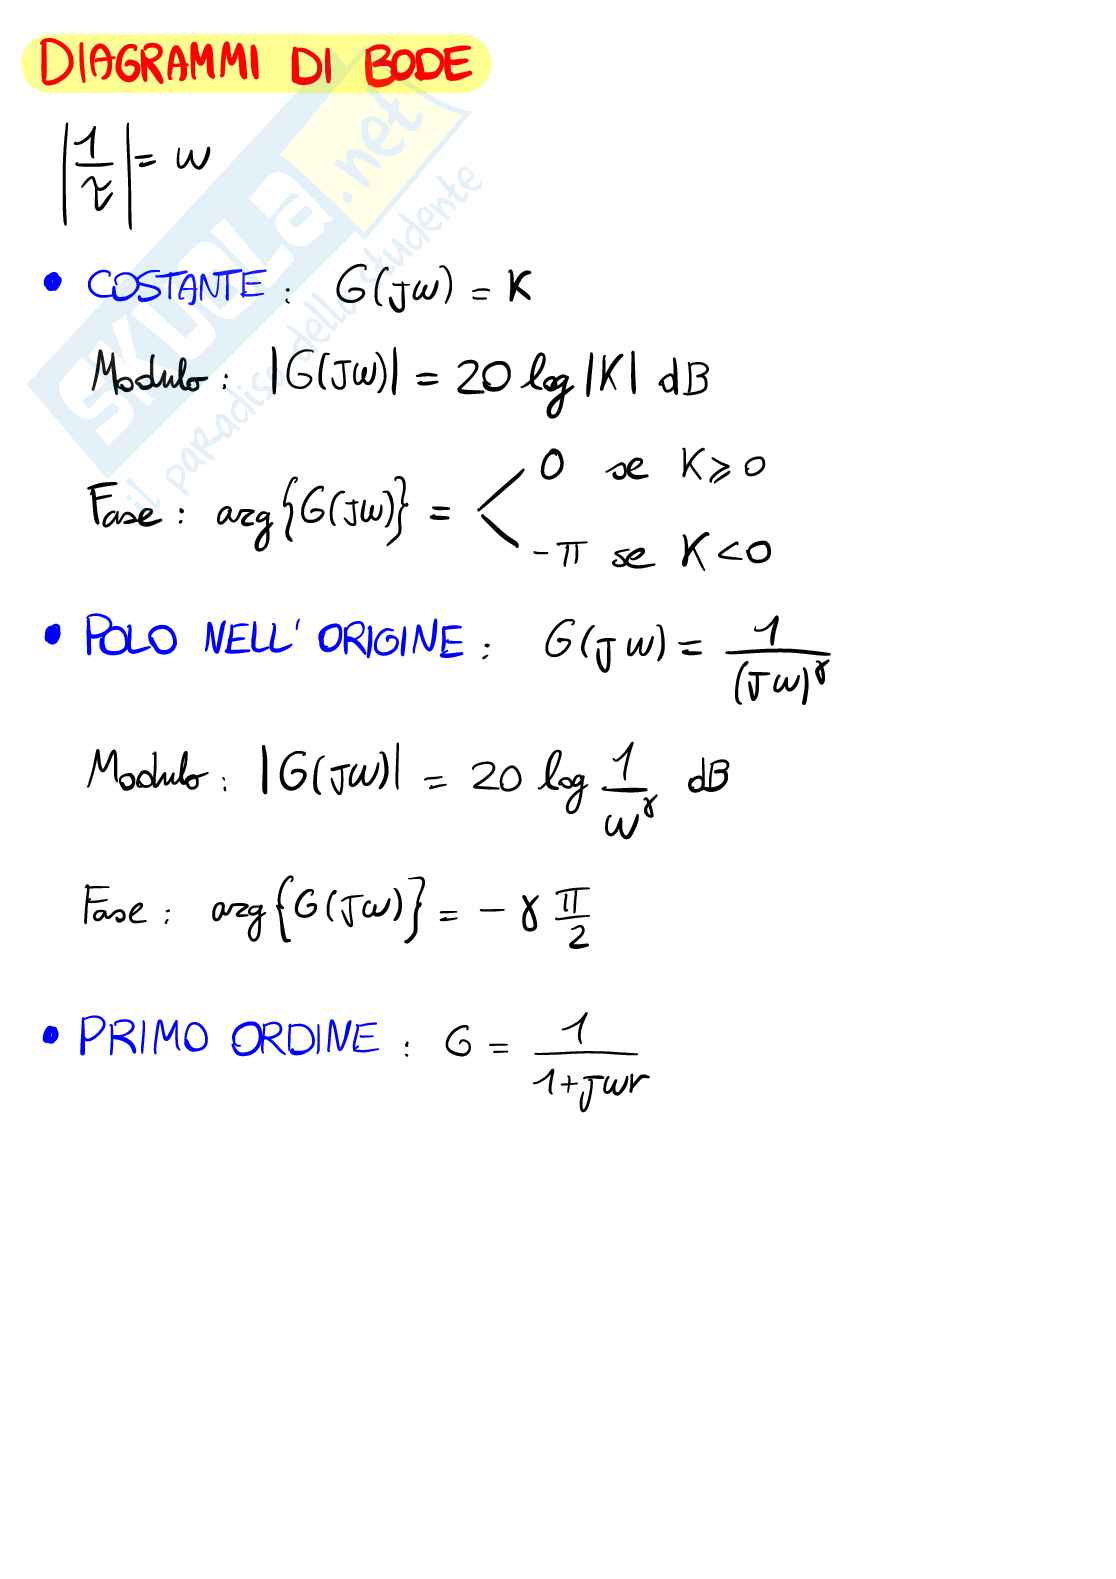 DIAGRAMMI DI BODE
|1/τ| = ω
• COSTANTE : G(Jω) = K
Modulo : |G(Jω)| = 20 log |K| dB
Fase : arg{G(Jω)} = < 0 se K ⩾ 0
-π se K < 0
• POLO NELL' ORIGINE : G(Jω) = 1/(Jω)^γ
Modulo : |G(Jω)| = 20 log 1/ω^γ dB
Fase : arg{G(Jω)} = - γ π/2
• PRIMO ORDINE : G = 1/(1+Jωr)
SKUOLA.net
il paradiso dello studente